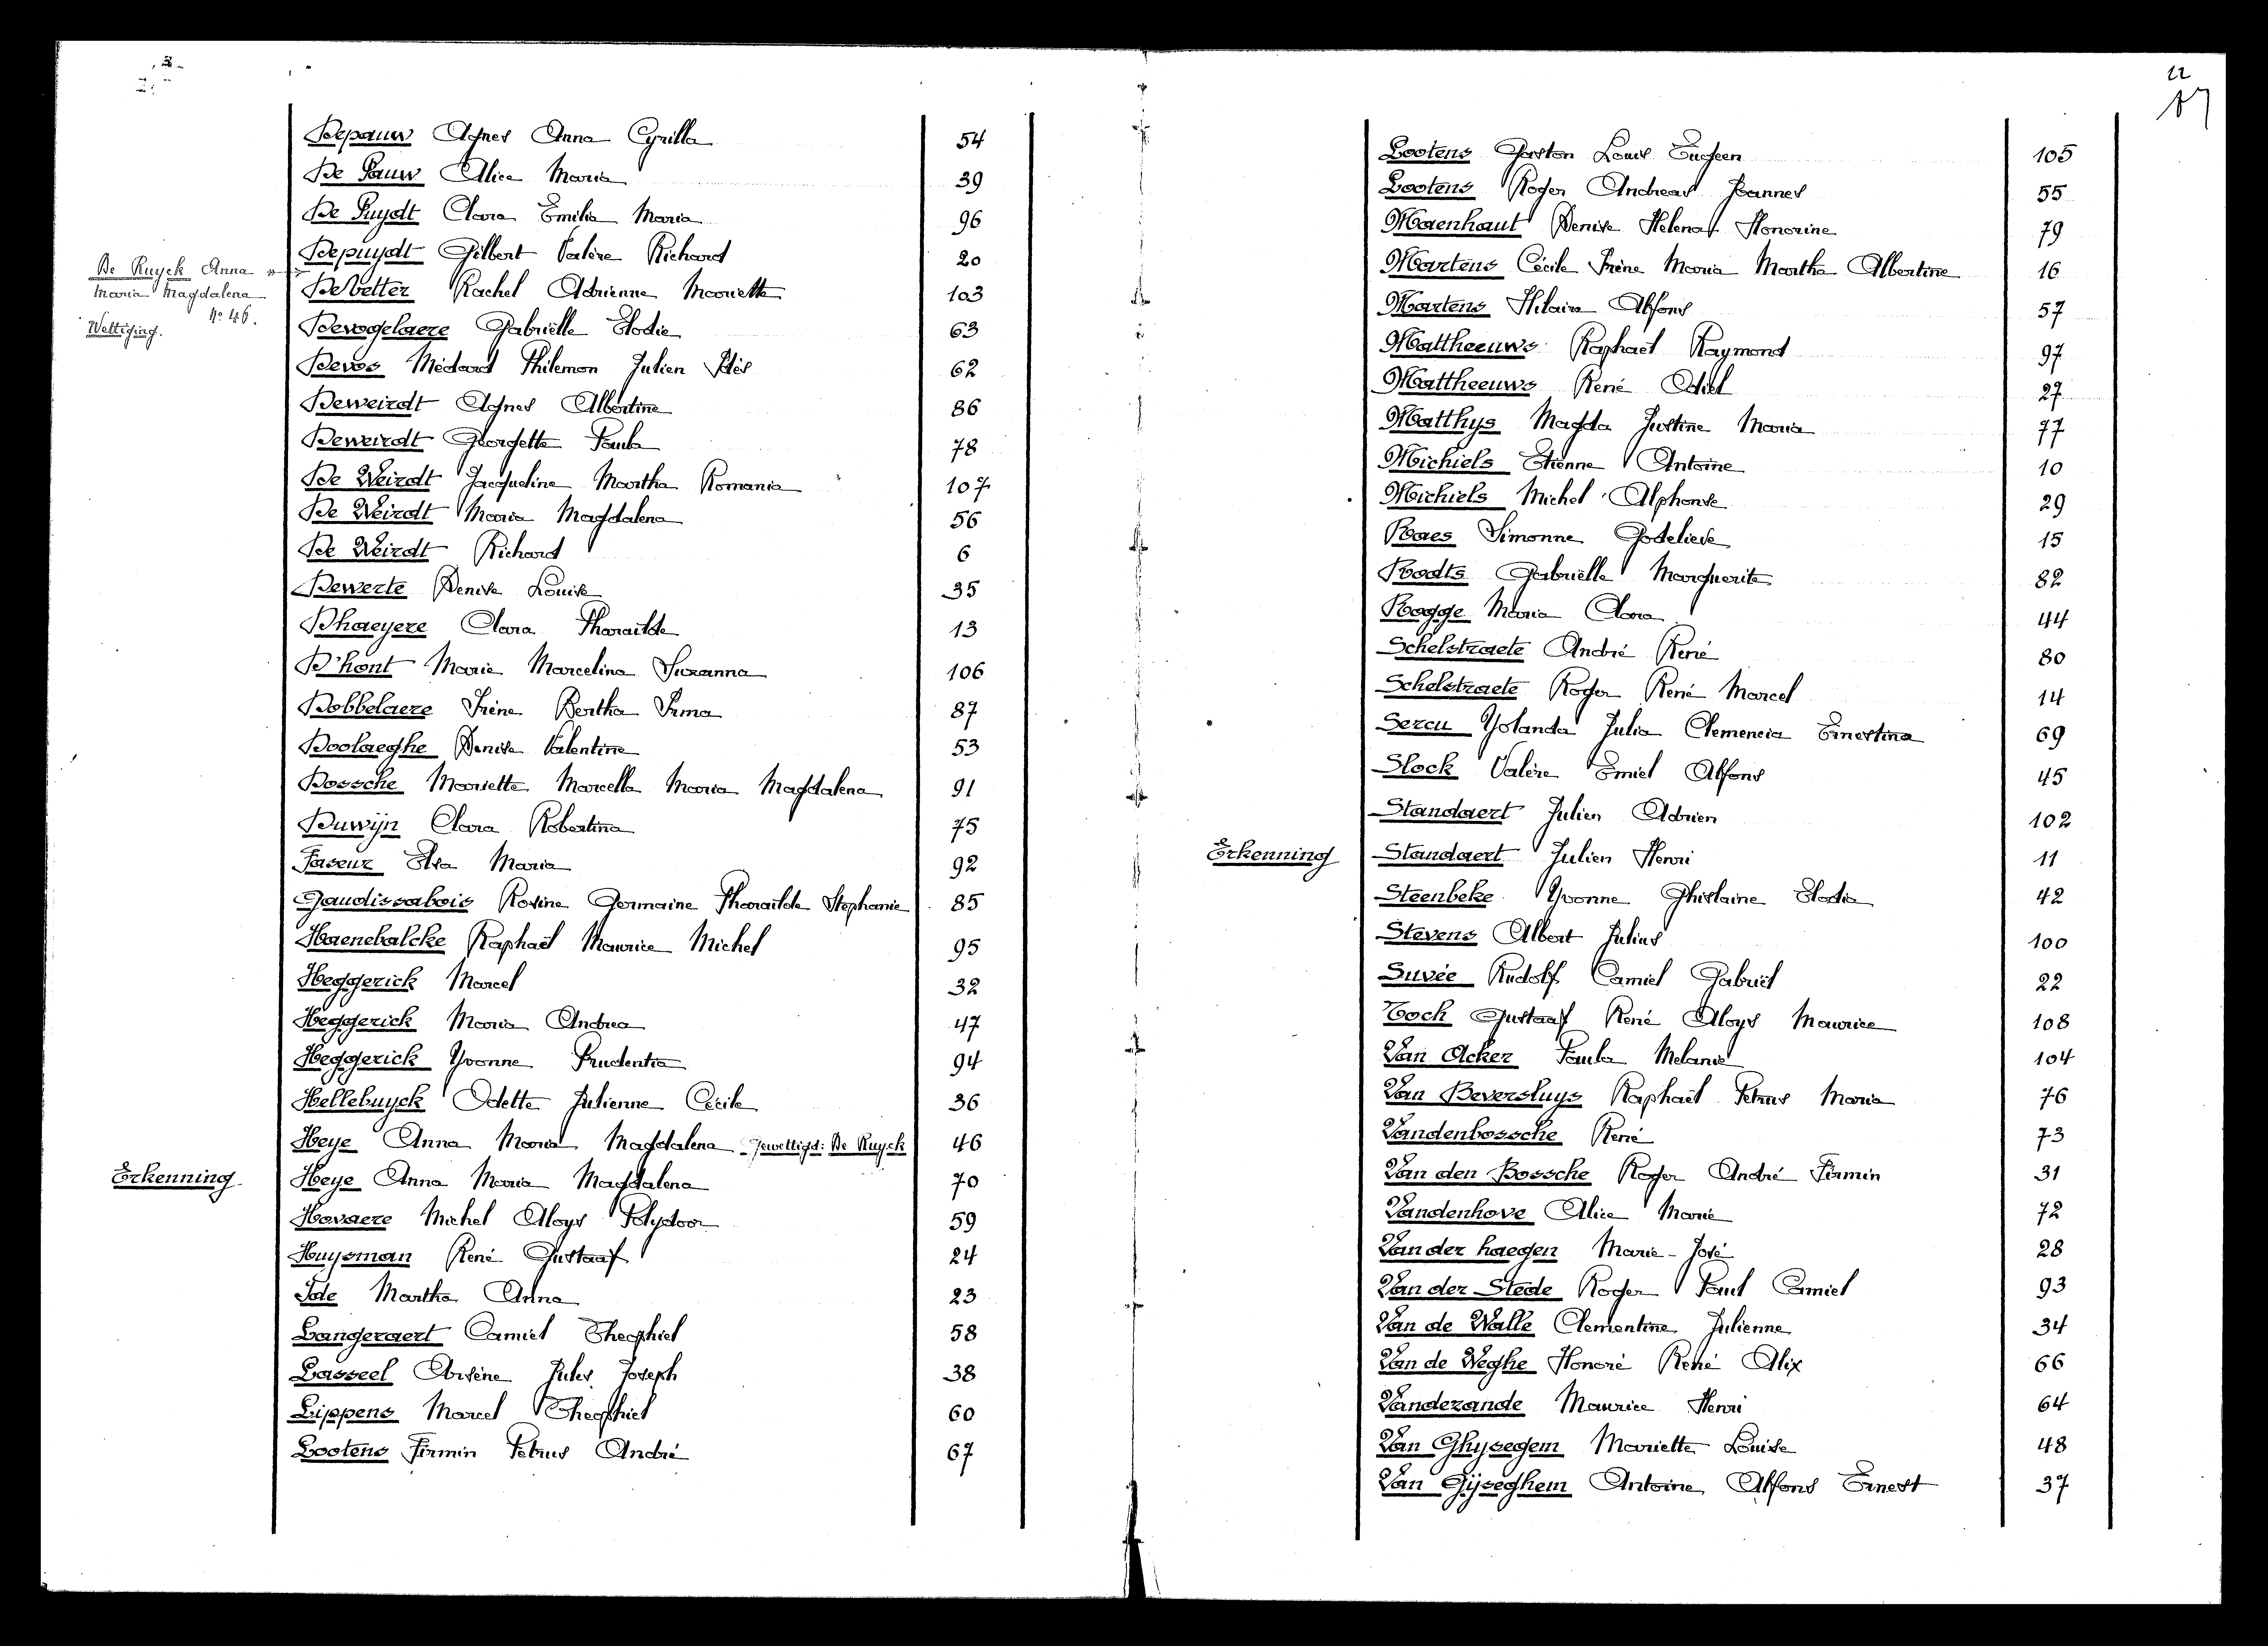 Depauw Agnes Anna Cyrilla 54
De Pauw Alice Maria 39
De Puydt Clara Emilia Maria 96
Depuydt Gilbert Valère Richard 20
De Ruyck Anna
Maria Magdalena
No 46.
Wettiging.
De Vetter Rachel Adrienne Mariette 103
Devogelaere Gabriëlle Elodie 63
Devos Médard Philemon Julien 62
Deweirdt Agnes Albertine 86
Deweirdt Georgette Paula 78
De Weirdt Jacqueline Martha Romania 107
De Weirdt Maria Magdalena 56
De Weirdt Richard 6
Dewerte Denise Louise 35
Dhaeyere Clara Pharaïlde 13
D'hont Marie Marcelina Suzanna 106
Dobbelaere Irène Bertha Irma 87
Doolaeghe Denise Valentine 53
Dossche Mariette Marcella Maria Magdalena 91
Duwijn Clara Robertina 75
Faseur Elsa Maria 92
Gaudissabois Rosine Germaine Pharaïlde Stephanie 85
Haenebalcke Raphaël Maurice Michel 95
Heggerick Marcel 32
Heggerick Maria Andrea 47
Heggerick Yvonne Prudentia 94
Hellebuyck Odette Julienne Cécile 36
Heye Anna Maria Magdalena gewettigd: De Ruyck 46
Erkenning Heye Anna Maria Magdalena 70
Hovaere Michel Aloys Polydoor 59
Huysman René Gustaaf 24
Ide Martha Anna 23
Langeraert Camiel Theophiel 58
Lasseel Arsène Jules Joseph 38
Lippens Marcel Theophiel 60
Lootens Firmin Petrus André 67
11
Lootens Gaston Louis Eugeen 105
Lootens Roger Andreas Joannes 55
Maenhaut Denise Helena Honorine 79
Martens Cécile Irène Maria Martha Albertine 16
Martens Hilaire Alfons 57
Mattheeuws Raphaël Raymond 97
Mattheeuws René Odiel 27
Matthys Magda Justine Maria 77
Michiels Etienne Antoine 10
Michiels Michel Alphonse 29
Raes Simonne Godelieve 15
Rodts Gabriëlle Marguerite 82
Rogge Maria Clara 44
Schelstraete André René 80
Schelstraete Roger René Marcel 14
Sercu Yolanda Julia Clemencia Ernestina 69
Slock Valère Emiel Alfons 45
Standaert Julien Adrien 102
Erkenning Standaert Julien Henri 11
Steenbeke Yvonne Ghislaine Elodia 42
Stevens Albert Julius 100
Suvée Rudolf Camiel Gabriël 22
Tock Gustaaf René Aloys Maurice 108
Van Acker Paula Melanie 104
Van Beversluys Raphaël Petrus Maria 76
Vandenbossche René 73
Van den Bossche Roger André Firmin 31
Vandenhove Alice Marie 72
Van der haegen Marie-José 28
Van der Stede Roger Paul Camiel 93
Van de Walle Clementine Julienne 34
Van de Weghe Honoré René Alix 66
Vandezande Maurice Henri 64
Van Ghysegem Mariette Louise 48
Van Gijseghem Antoine Alfons Ernest 37